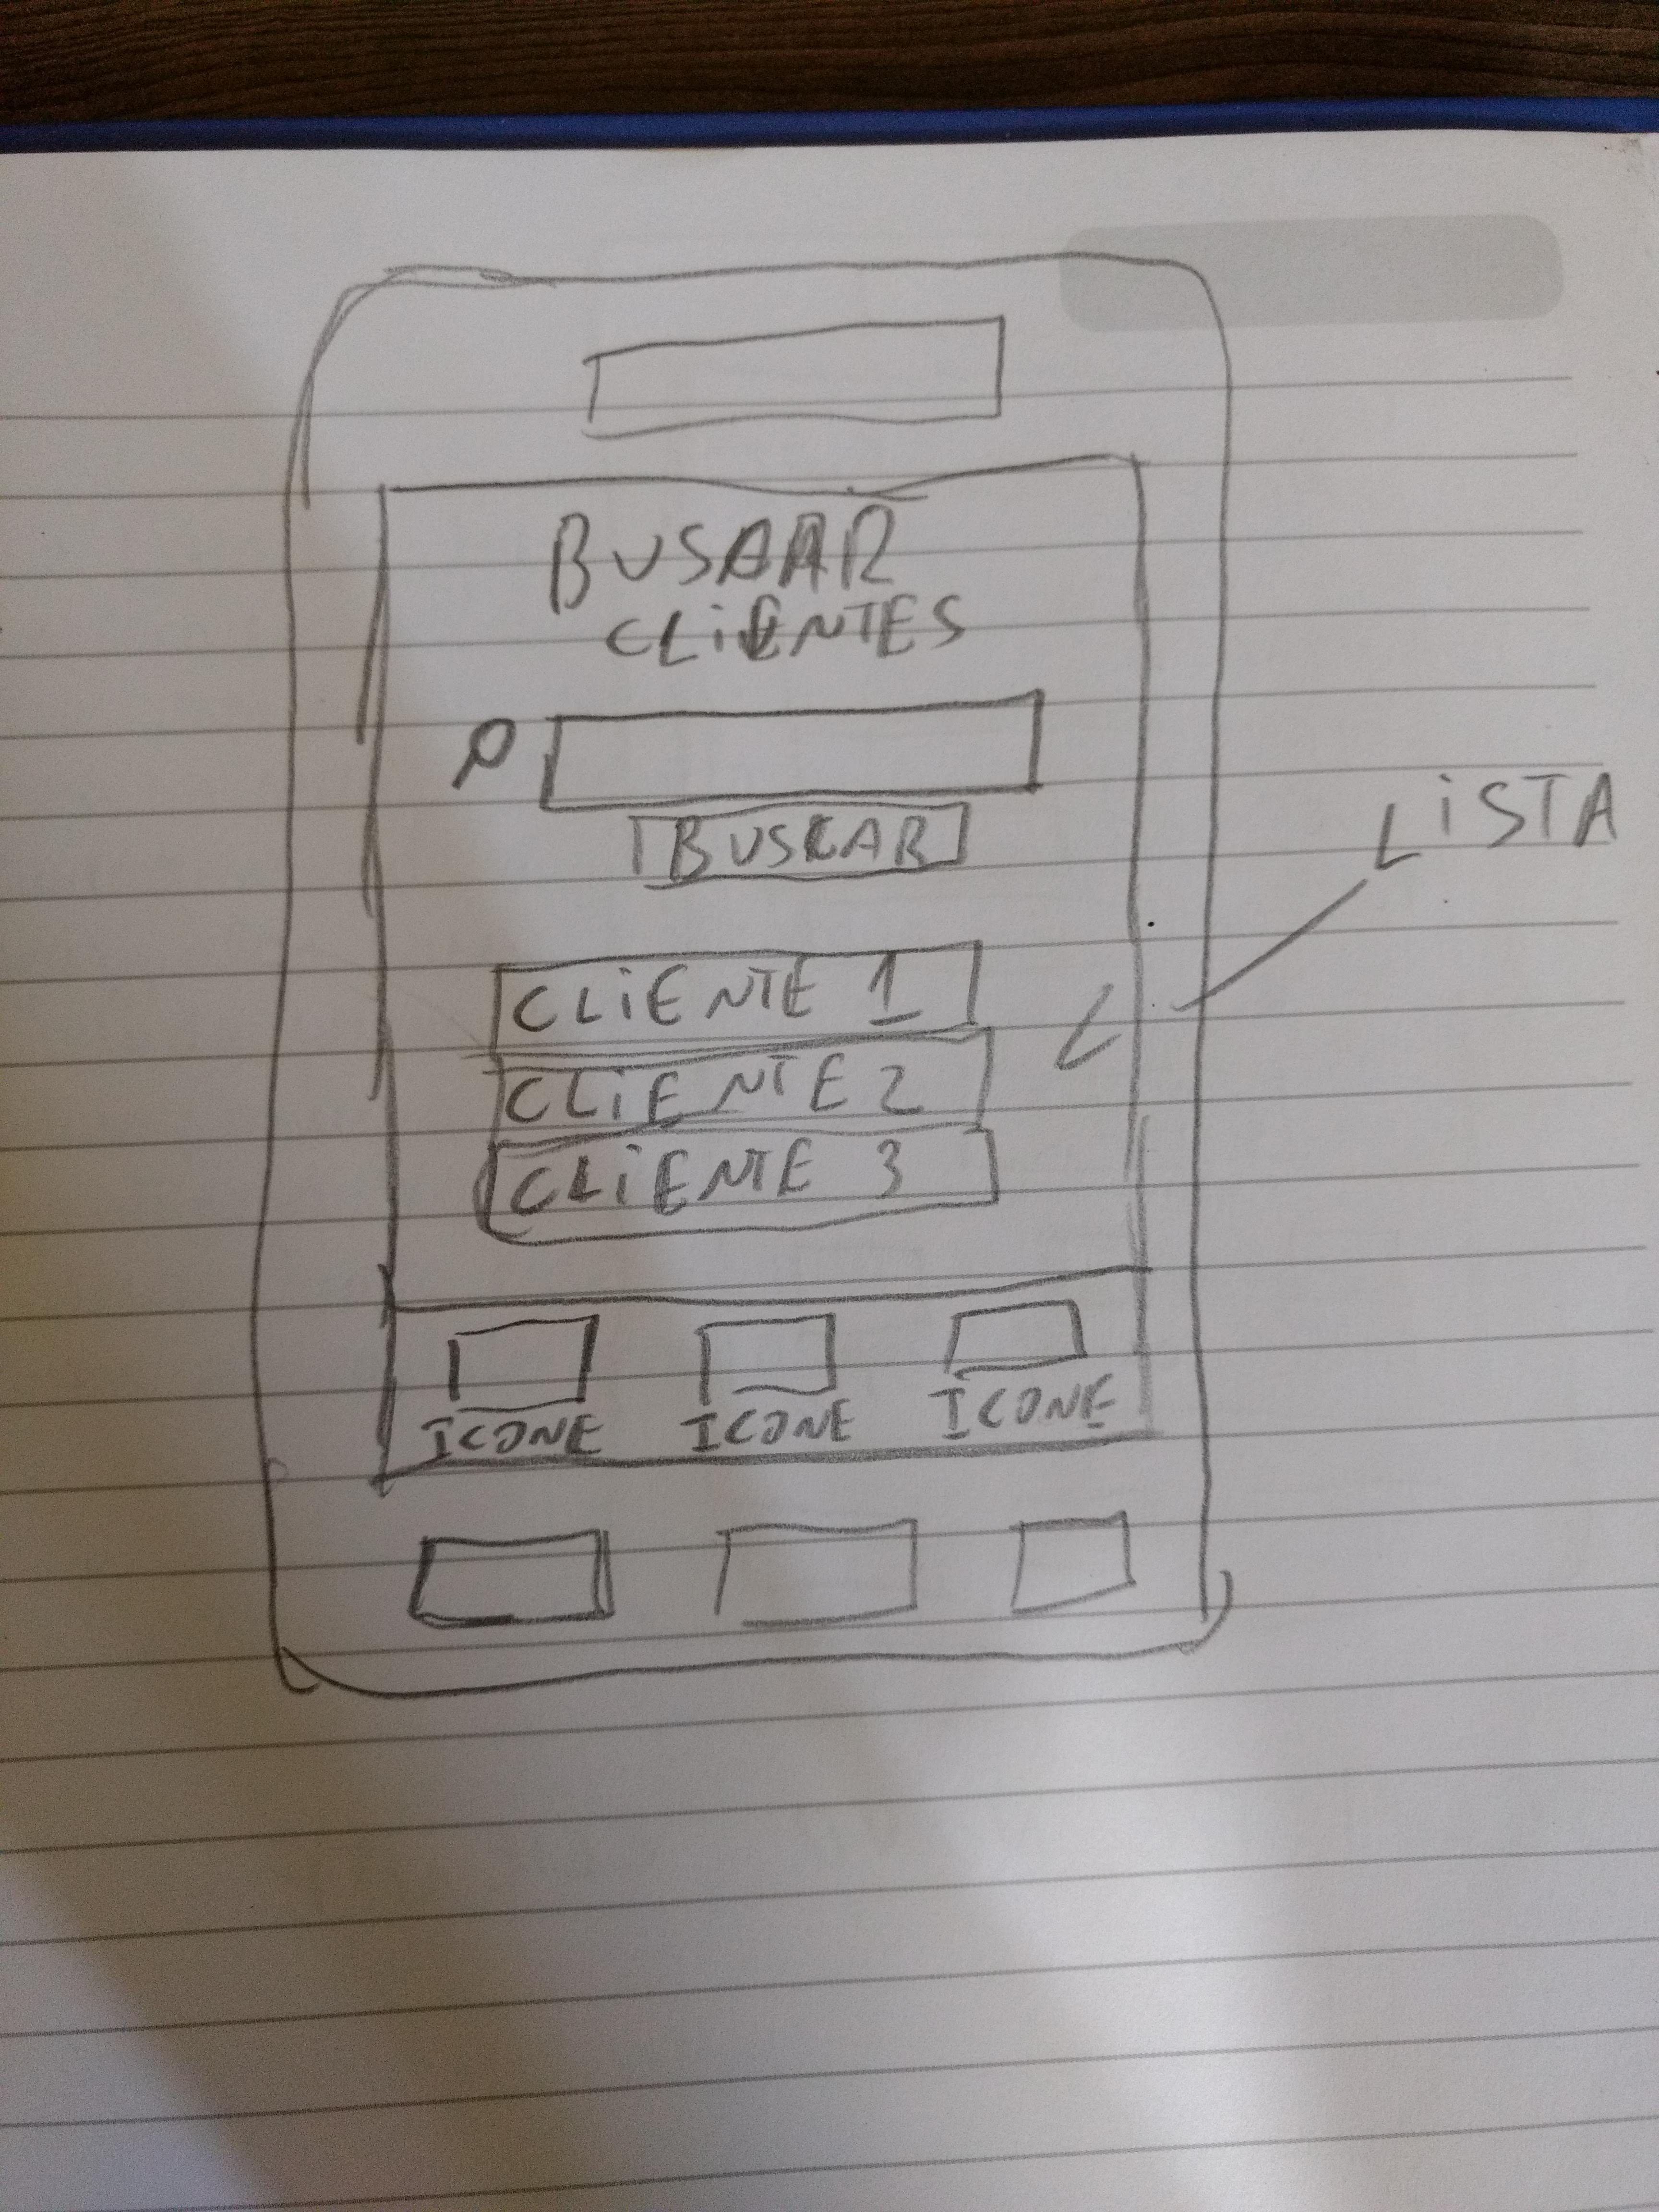 BUSCAR
CLIENTES
BUSCAR
LISTA
CLIENTE 1
CLIENTE 2
CLIENTE 3
ICONE ICONE ICONE